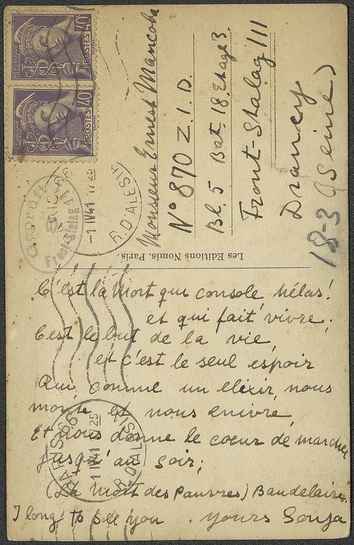 Monsieur Ernest Mancoba
N° 870 Z.I.D.
Bl. 5 Bat. 18. Etage 3
Front-Stalag III
Drancy
(Seine)
18-3
Les Editions Nomis, Paris.
POSTES
POSTES
Geprüft
Front-Stalag III
-1 IV 41
R. D'ALESIA
C'est la mort qui console hélas!
et qui fait vivre;
C'est le but de la vie,
et c'est le seul espoir
Qui, comme un elixir, nous
monte et nous enivre,
Et nous donne le coeur de marcher
jusqu'au soir;
(La mort des Pauvres) Baudelaire.
I long to see you. yours Sonja
PARIS
R. D'ALESIA